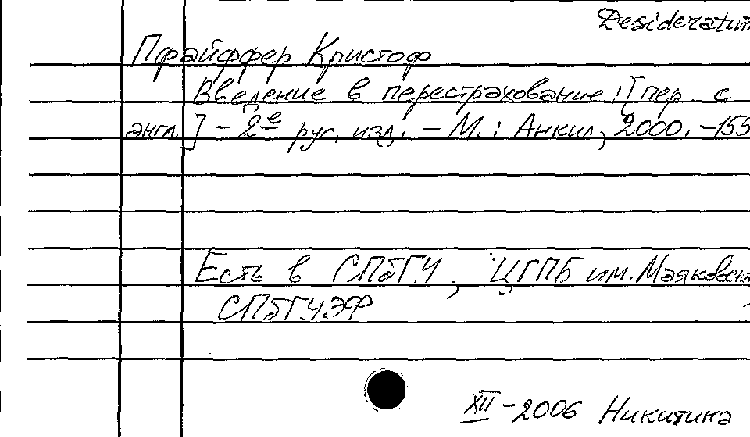 Desideratum
Пфайффер Кристоф
Введение в перестрахование : [пер. с
англ.] – 2е рус. изд. – М. : Анкил, 2000. – 155
Есть в СПбГУ, ЦГПБ им. Маяковско
СПбГУЭФ
XII – 2006 Никитина